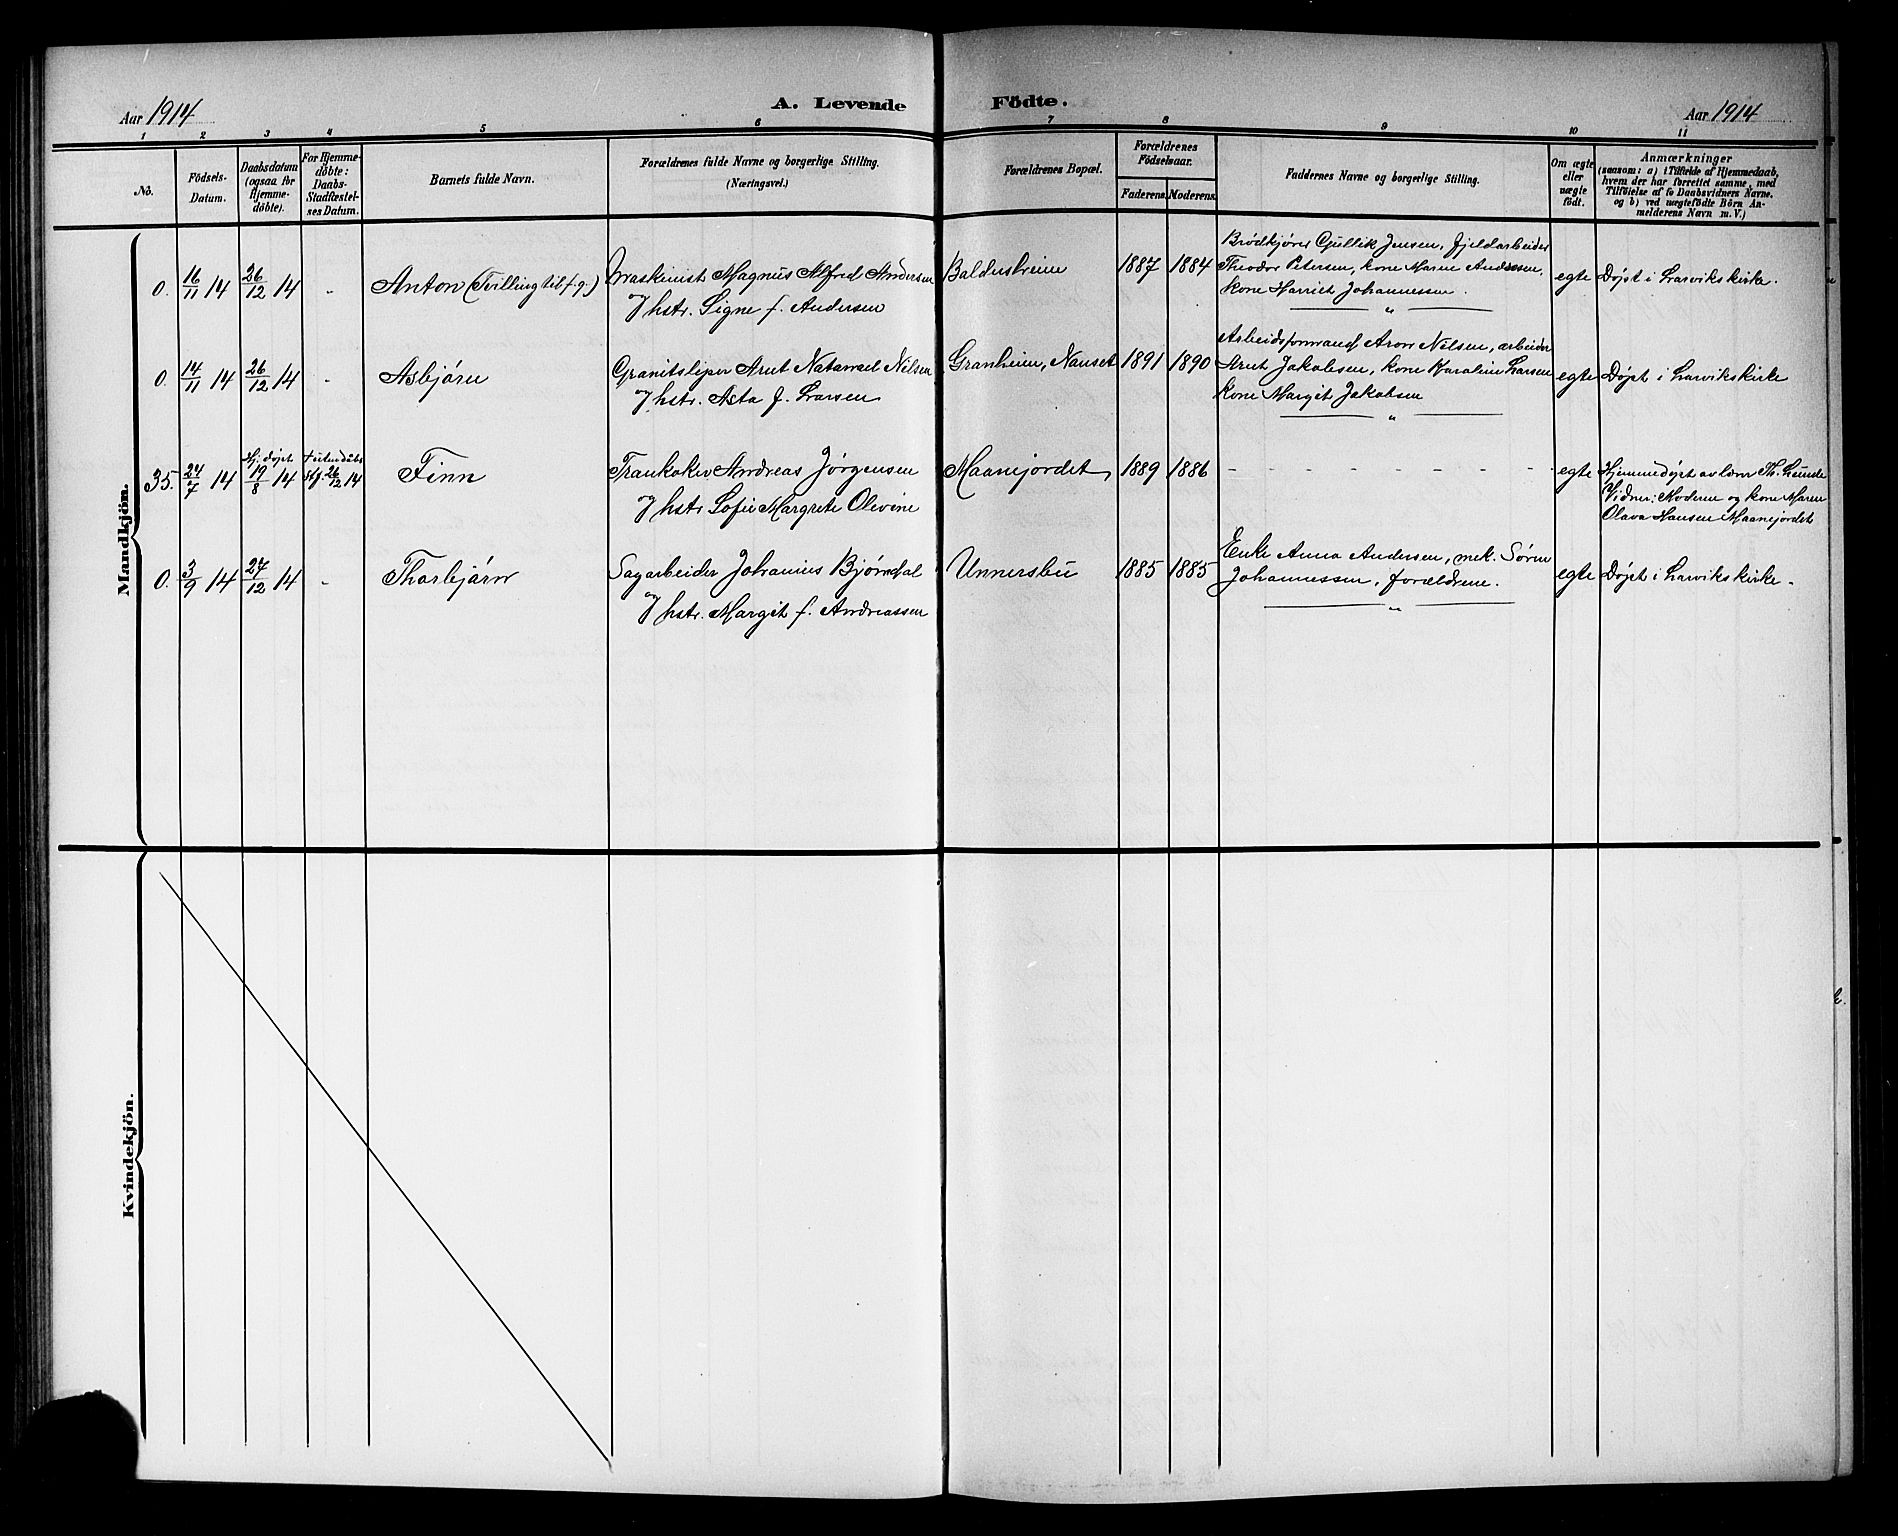 Aar 1914
A. Levende Födte.
Aar 1914
1 2 3 4 5 6 7 8 9 10 11
No.
Födsels-
Datum.
Daabsdatum
(ogsaa for
Hjemme-
döbte).
For Hjemme-
döbte:
Daabs-
Stadfæstel-
ses Datum.
Barnets fulde Navn.
Forældrenes fulde Navne og borgerlige Stilling.
(Næringsvei.)
Forældrenes Bopæl.
Forældrenes
Födselsaar.
Faderens. Moderens.
Faddernes Navne og borgerlige Stilling.
Om ægte
eller
uægte
födt.
Anmærkninger
(saasom: a) i Tilfælde af Hjemmedaab,
hvem der har forrettet samme, med
Tilföielse af to Daabsvidners Navne.
og b) ved uægtefödte Börn An-
melderens Navn m. V.)
Mandkjön.
0. 16/11 14 26/12 14 " Anton (Tvilling til f.g.)
Maskinist Magnus Alfred Andersen
og hstr. Signe f. Andersen
Baldersheim 1887 1884
Brødkjører Gullik Jensen, fjeldarbeider
Theodor Petersen, kone Maren Andresen,
kone Harriet Johannessen.
egte Døpt i Larvikskirke.
0. 14/11 14 26/12 14 " Asbjørn
Granitsliper Arnt Natanael Nilsen
og hstr. Asta f. Larsen
Granheim, Nanset 1891 1890
Arbeidsformand Aron Nilsen, arbeider
Arnt Jakobsen, kone Karoline Larsen
kone Margit Jakobsen
egte Døpt i Larvikskirke
35. 24/7 14 Hj. døpt 19/8 14 26/12 14 Finn
Trankoker Andreas Jørgensen
og hstr. Sofie Margrete Olivine
Maanejordet 1889 1886
- - - - - - - -
egte Hjemmedøpt av lærer Th. Lunde
Vidner: Moderen og kone Maren
Olava Hansen Maanejordet
0. 3/9 14 27/12 14 " Thorbjørn
Sagarbeider Johannes Bjørndal
og hstr. Margit f. Andreassen
Unnersbu 1885 1885
Enke Anna Andersen, mek. Søren
Johannessen, forældrene.
egte Døpt i Larvikskirke.
Kvindekjön.